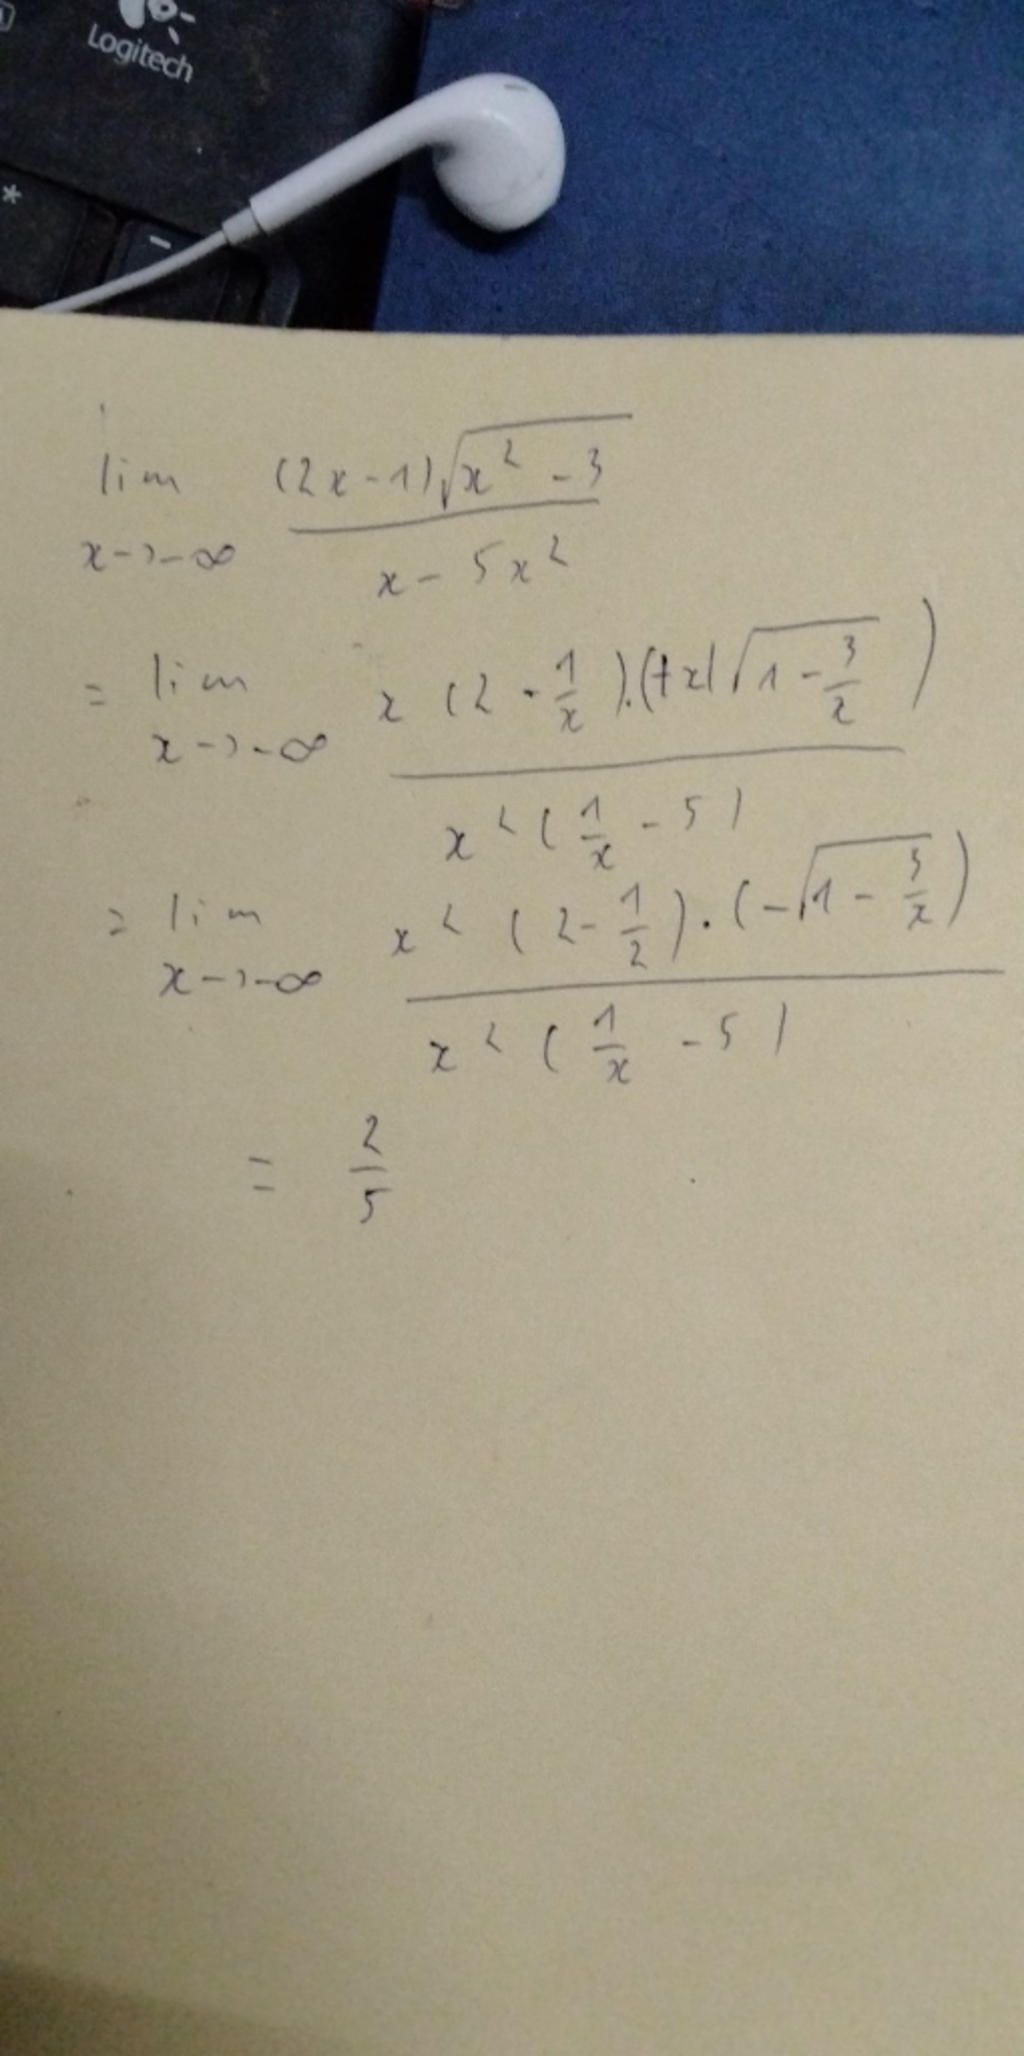 Logitech
*
-
lim (2x-1)√(x² - 3)
x->-∞ x - 5x²
= lim x (2 - 1/x).(|x|√(1 - 3/x))
x->-∞ x² (1/x - 5)
= lim x² (2 - 1/2).(-√(1 - 3/x))
x->-∞ x² (1/x - 5)
= 2/5